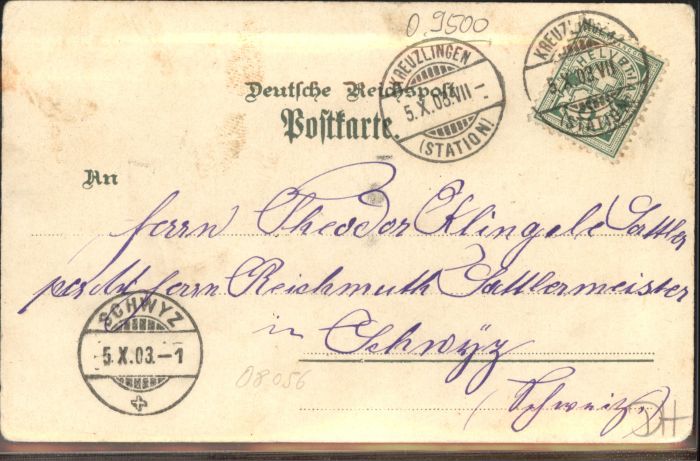 D 9500
KREUZLINGEN
5.X.03.VII–
(STATION)
KREUZLINGEN
5.X.03.VII
(STATION)
HELVETIA
Deutsche Reichspost
Postkarte.
An
Herrn Theodor Klingele Sattler
Herrn Reichmuth Sattlermeister
in Schwyz
(Schweiz)
SCHWYZ
5.X.03.–1
08056